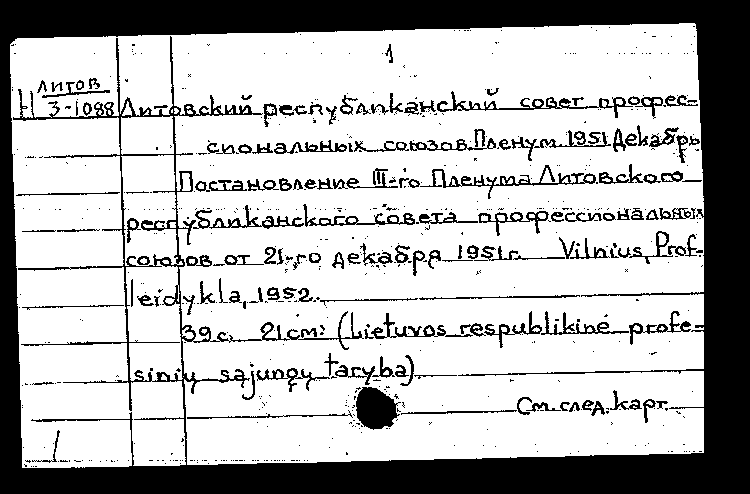 1
Литов
Н 3-1088
Литовский республиканский совет профес-
сиональных союзов. Пленум. 1951 Декабрь
Постановление III-го Пленума Литовского
республиканского совета профессиональных
союзов от 21-го декабря 1951 г. Vilnius, Prof-
leidykla, 1952.
39 с. 21 см. (Lietuvos respublikinė profe-
sinių sąjungų taryba)
См. след. карт.
1